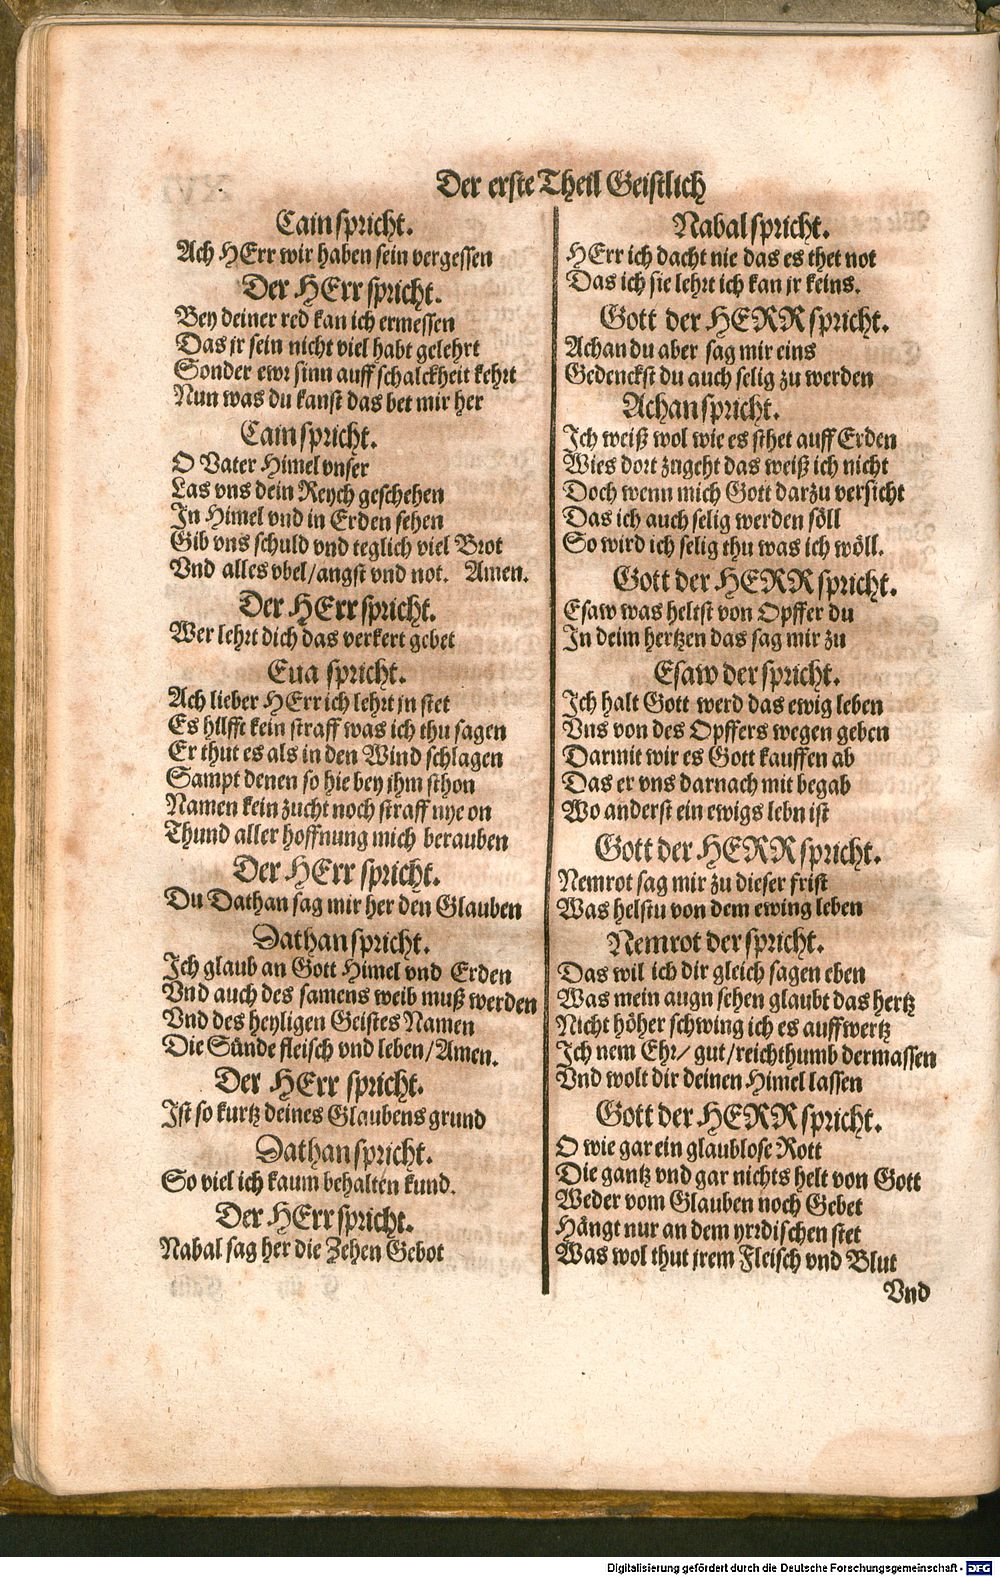 Der erste Theil Geistlich
Cain spricht.
Ach HErr wir haben sein vergessen
Der HErr spricht.
Bey deiner red kan ich ermessen
Das jr sein nicht viel habt gelehrt
Sonder ewr sinn auff schalckheit kehrt
Nun was du kanst das bet mir her
Cain spricht.
O Vater Himel vnser
Las vns dein Reych geschehen
In Himel vnd in Erden sehen
Gib vns schuld vnd teglich viel Brot
Vnd alles vbel/angst vnd not. Amen.
Der HErr spricht.
Wer lehrt dich das verkert gebet
Eua spricht.
Ach lieber HErr ich lehrt jn stet
Es hilfft kein straff was ich thu sagen
Er thut es als in den Wind schlagen
Sampt denen so hie bey jhm sthon
Namen kein zucht noch straff nye on
Thund aller hoffnung mich berauben
Der HErr spricht.
Du Dathan sag mir her den Glauben
Dathan spricht.
Ich glaub an Gott Himel vnd Erden
Vnd auch des samens weib muß werden
Vnd des heyligen Geistes Namen
Die Sünde fleisch vnd leben/Amen.
Der HErr spricht.
Ist so kurtz deines Glaubens grund
Dathan spricht.
So viel ich kaum behalten kund.
Der HErr spricht.
Nabal sag her die Zehen Gebot
Nabal spricht.
HErr ich dacht nie das es thet not
Das ich sie lehrt ich kan jr keins.
Gott der HERR spricht.
Achan du aber sag mir eins
Gedenckst du auch selig zu werden
Achan spricht.
Ich weiß wol wie es sthet auff Erden
Wies dort zugeht das weiß ich nicht
Doch wenn mich Gott darzu versicht
Das ich auch selig werden söll
So wird ich selig thu was ich wöll.
Gott der HERR spricht.
Esaw was heltst von Opffer du
In deim hertzen das sag mir zu
Esaw der spricht.
Ich halt Gott werd das ewig leben
Vns von des Opffers wegen geben
Darmit wir es Gott kauffen ab
Das er vns darnach mit begab
Wo anderst ein ewigs lebn ist
Gott der HERR spricht.
Nemrot sag mir zu dieser frist
Was helstu von dem ewing leben
Nemrot der spricht.
Das wil ich dir gleich sagen eben
Was mein augn sehen glaubt das hertz
Nicht höher schwing ich es auffwertz
Ich nem Ehr/ gut/reichthumb dermassen
Vnd wolt dir deinen Himel lassen
Gott der HERR spricht.
O wie gar ein glaublose Rott
Die gantz vnd gar nichts helt von Gott
Weder vom Glauben noch Gebet
Hängt nur an dem yrrdischen stet
Was wol thut jrem Fleisch vnd Blut
Vnd
Digitalisierung gefördert durch die Deutsche Forschungsgemeinschaft - DFG